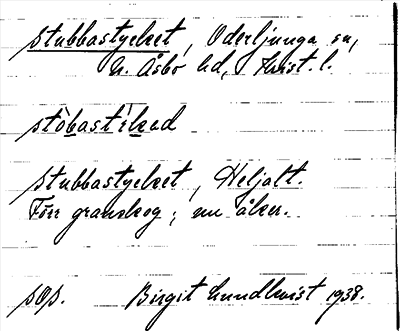 stubbastycket, Oderljunga sn,
N. Åsbo hd, Krist. l.
stòbastikad
stubbastycket, Heljalt.
Förr granskog; nu åker.
sOs. Birgit Lundkvist 1938.